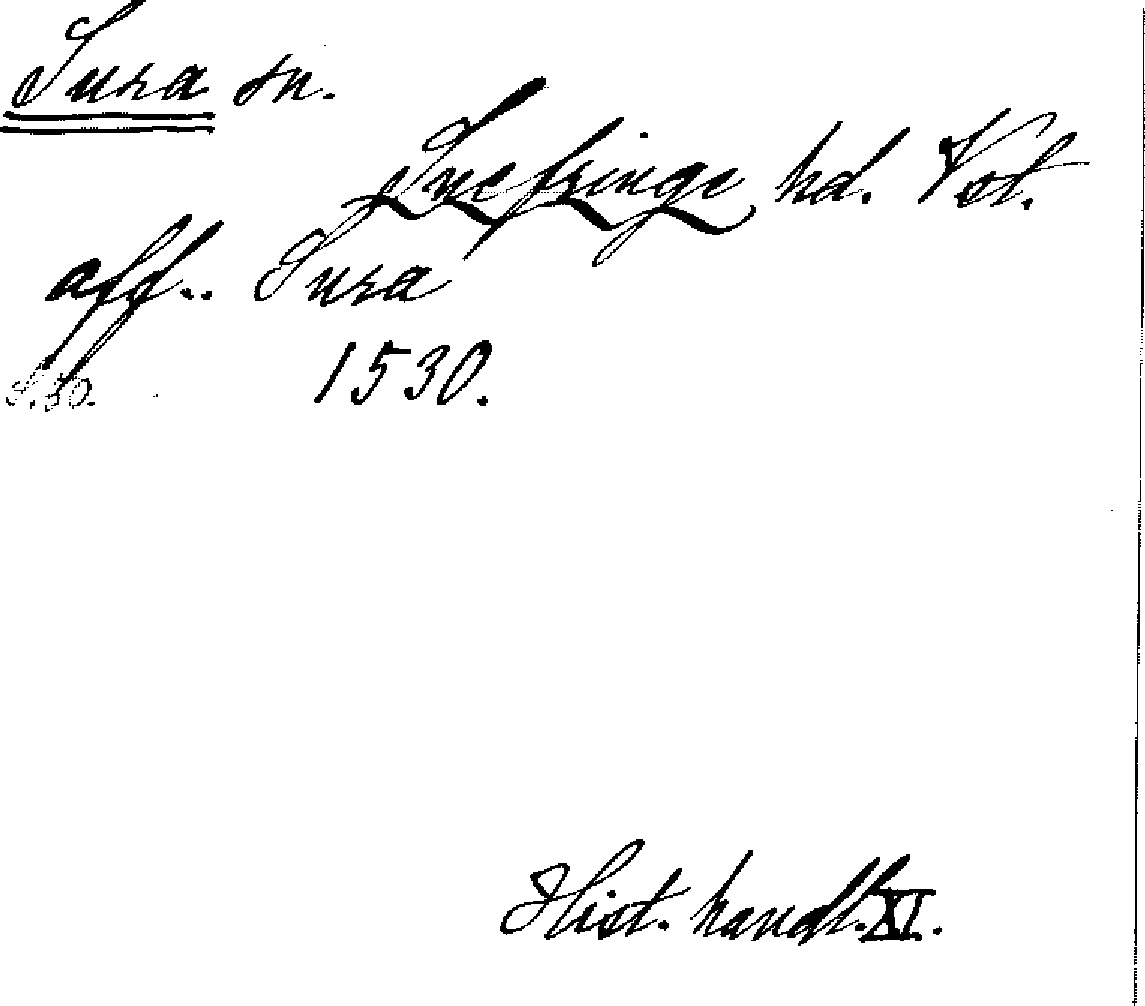 Sura sn.
Snefringe hd. Vst.
aff.. Sura
S. 30. 1530.
Hist. handl. XI.